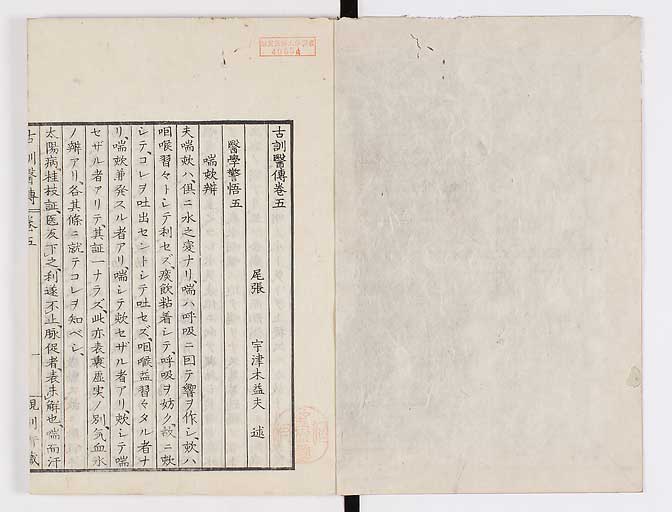 古訓醫傳巻五
尾張　宇津木益夫　述
醫學警悟五
喘欬辨
夫喘欬ハ、倶ニ水之変ナリ、喘ハ呼吸ニ因テ響ヲ作シ、欬ハ
咽喉習々トシテ利セズ、痰飲粘着シテ、呼吸ヲ妨ク、故ニ欬
シテ、コレヲ吐出セントシテ吐セズ、咽喉益習々タル者ナ
リ、喘欬兼発スル者アリ、喘シテ欬セザル者アリ、欬シテ喘
セザル者アリテ、其証一ナラズ、此亦表裏虚実ノ別、気血水
ノ辨アリ、各其條ニ就テコレヲ知ベシ、
太陽病、桂枝証、医反下之、利遂不止、脉促者、表未解也、喘而汗
古訓醫傳　巻五　一